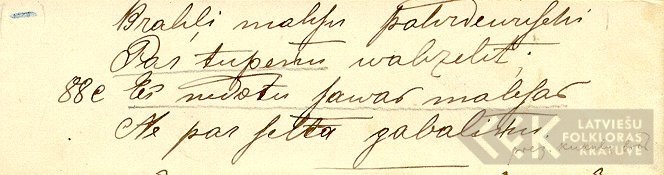 Brahļi mahsu pahrdewuschi
Par tupeņu wahzeliti;
88c Es nedotu sawas mahsas
Ne par selta gabaliņu.
LATVIEŠU
FOLKLORAS
KRĀTUVE